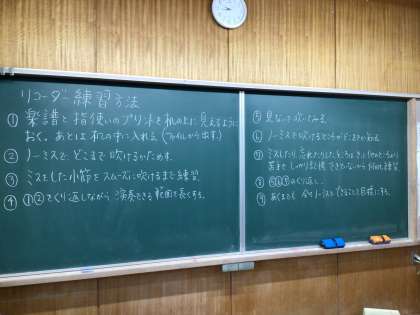 リコーダー練習方法
① 楽譜と指使いのプリントを机の上に見えるように
おく。あとは机の中に入れる(ファイルから出す。)
② ノーミスで、どこまで吹けるかためす。
③ ミスをした小節をスムーズに吹けるまで練習。
④ ①②をくり返しながら 演奏できる範囲を長くする。
⑤ 見ないで吹いてみる。
⑥ ノーミスで吹けるところが
⑦ ミスしたり、忘れたりしたところは
練習
⑧ ⑤⑥⑦のくり返し。
⑨ あくまでも ノーミスでできることを目標にする。